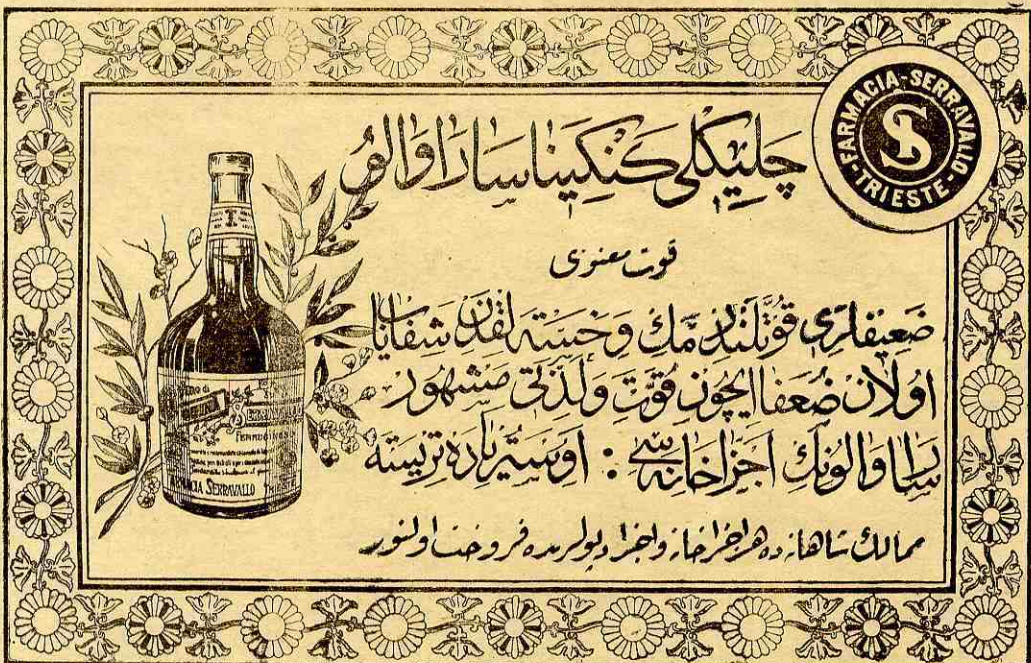 FARMACIA-SERRAVALLO
TRIESTE
S
چليكلی كنكينا ساراوالو
قوت معنوی
ضعيفلری قوتلندرمك وخسته لقدن شفاياب
اولان ضعفا ايچون قوت ولذتی مشهور
ساراوالونك اجزاخانه سی : اوسترياده تريسته
ممالك شاهانه ده هر اجزاخانه واجزا ديپولرنده فروخت اولنور
SERRAVALLO
FERRUGINOSA
FARMACIA SERRAVALLO